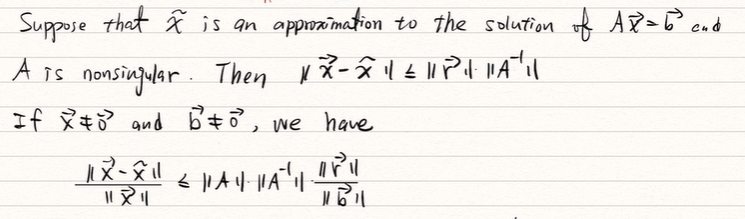 Suppose that x̃ is an approximation to the solution of Ax⃗=b⃗ and
A is nonsingular. Then ‖x⃗-x̃‖ ≤ ‖r⃗‖·‖A⁻¹‖
If x⃗≠0⃗ and b⃗≠0⃗, we have
‖x⃗-x̃‖/‖x⃗‖ ≤ ‖A‖·‖A⁻¹‖·‖r⃗‖/‖b⃗‖